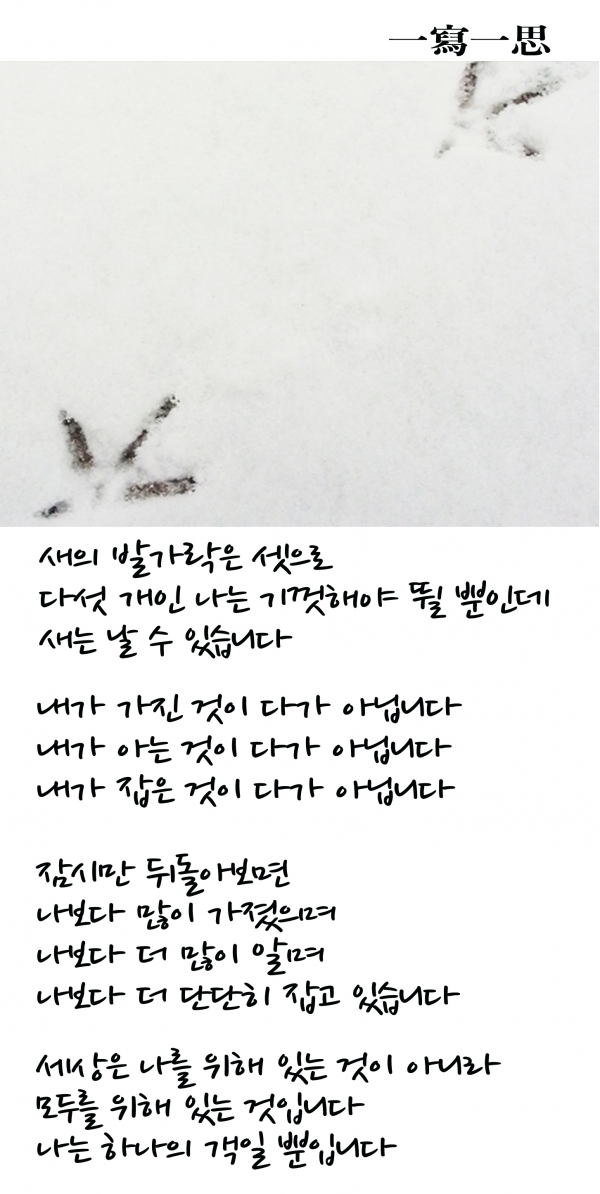 一寫一思
새의 발가락은 셋으로
다섯 개인 나는 기껏해야 뛸 뿐인데
새는 날 수 있습니다
내가 가진 것이 다가 아닙니다
내가 아는 것이 다가 아닙니다
내가 잡은 것이 다가 아닙니다
잠시만 뒤돌아보면
나보다 많이 가졌으며
나보다 더 많이 알며
나보다 더 단단히 잡고 있습니다
세상은 나를 위해 있는 것이 아니라
모두를 위해 있는 것입니다
나는 하나의 객일 뿐입니다